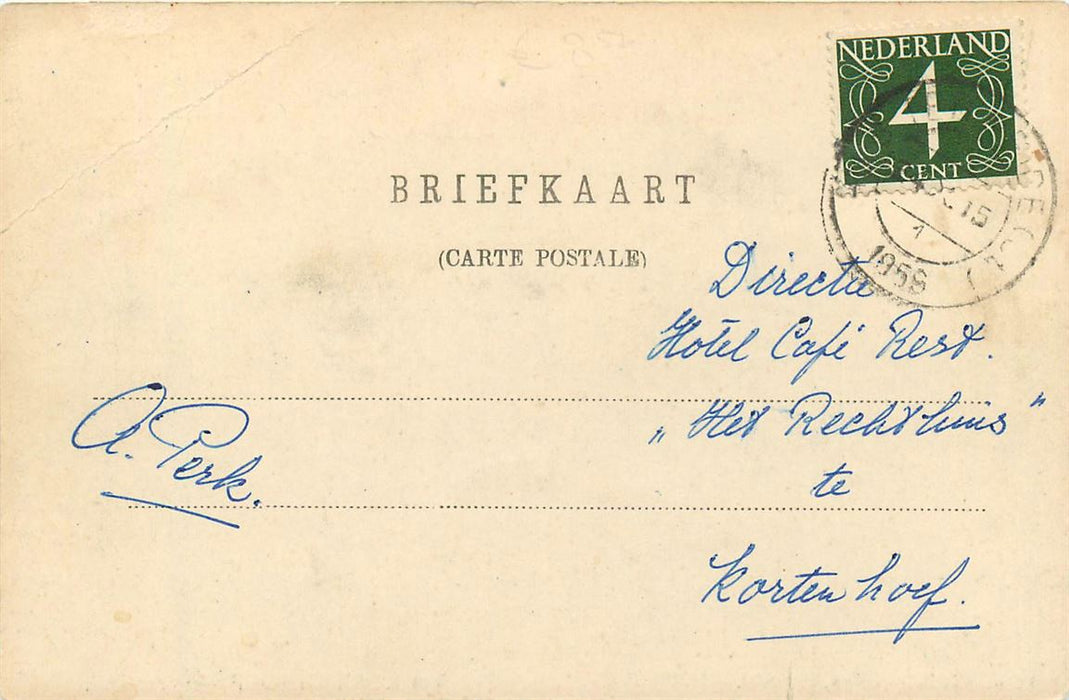 NEDERLAND
4
CENT
BRIEFKAART
(CARTE POSTALE)
15
1
1956
Directie
Hotel Café Rest.
„Het Rechthuis"
te
Kortenhoef.
A. Perk.